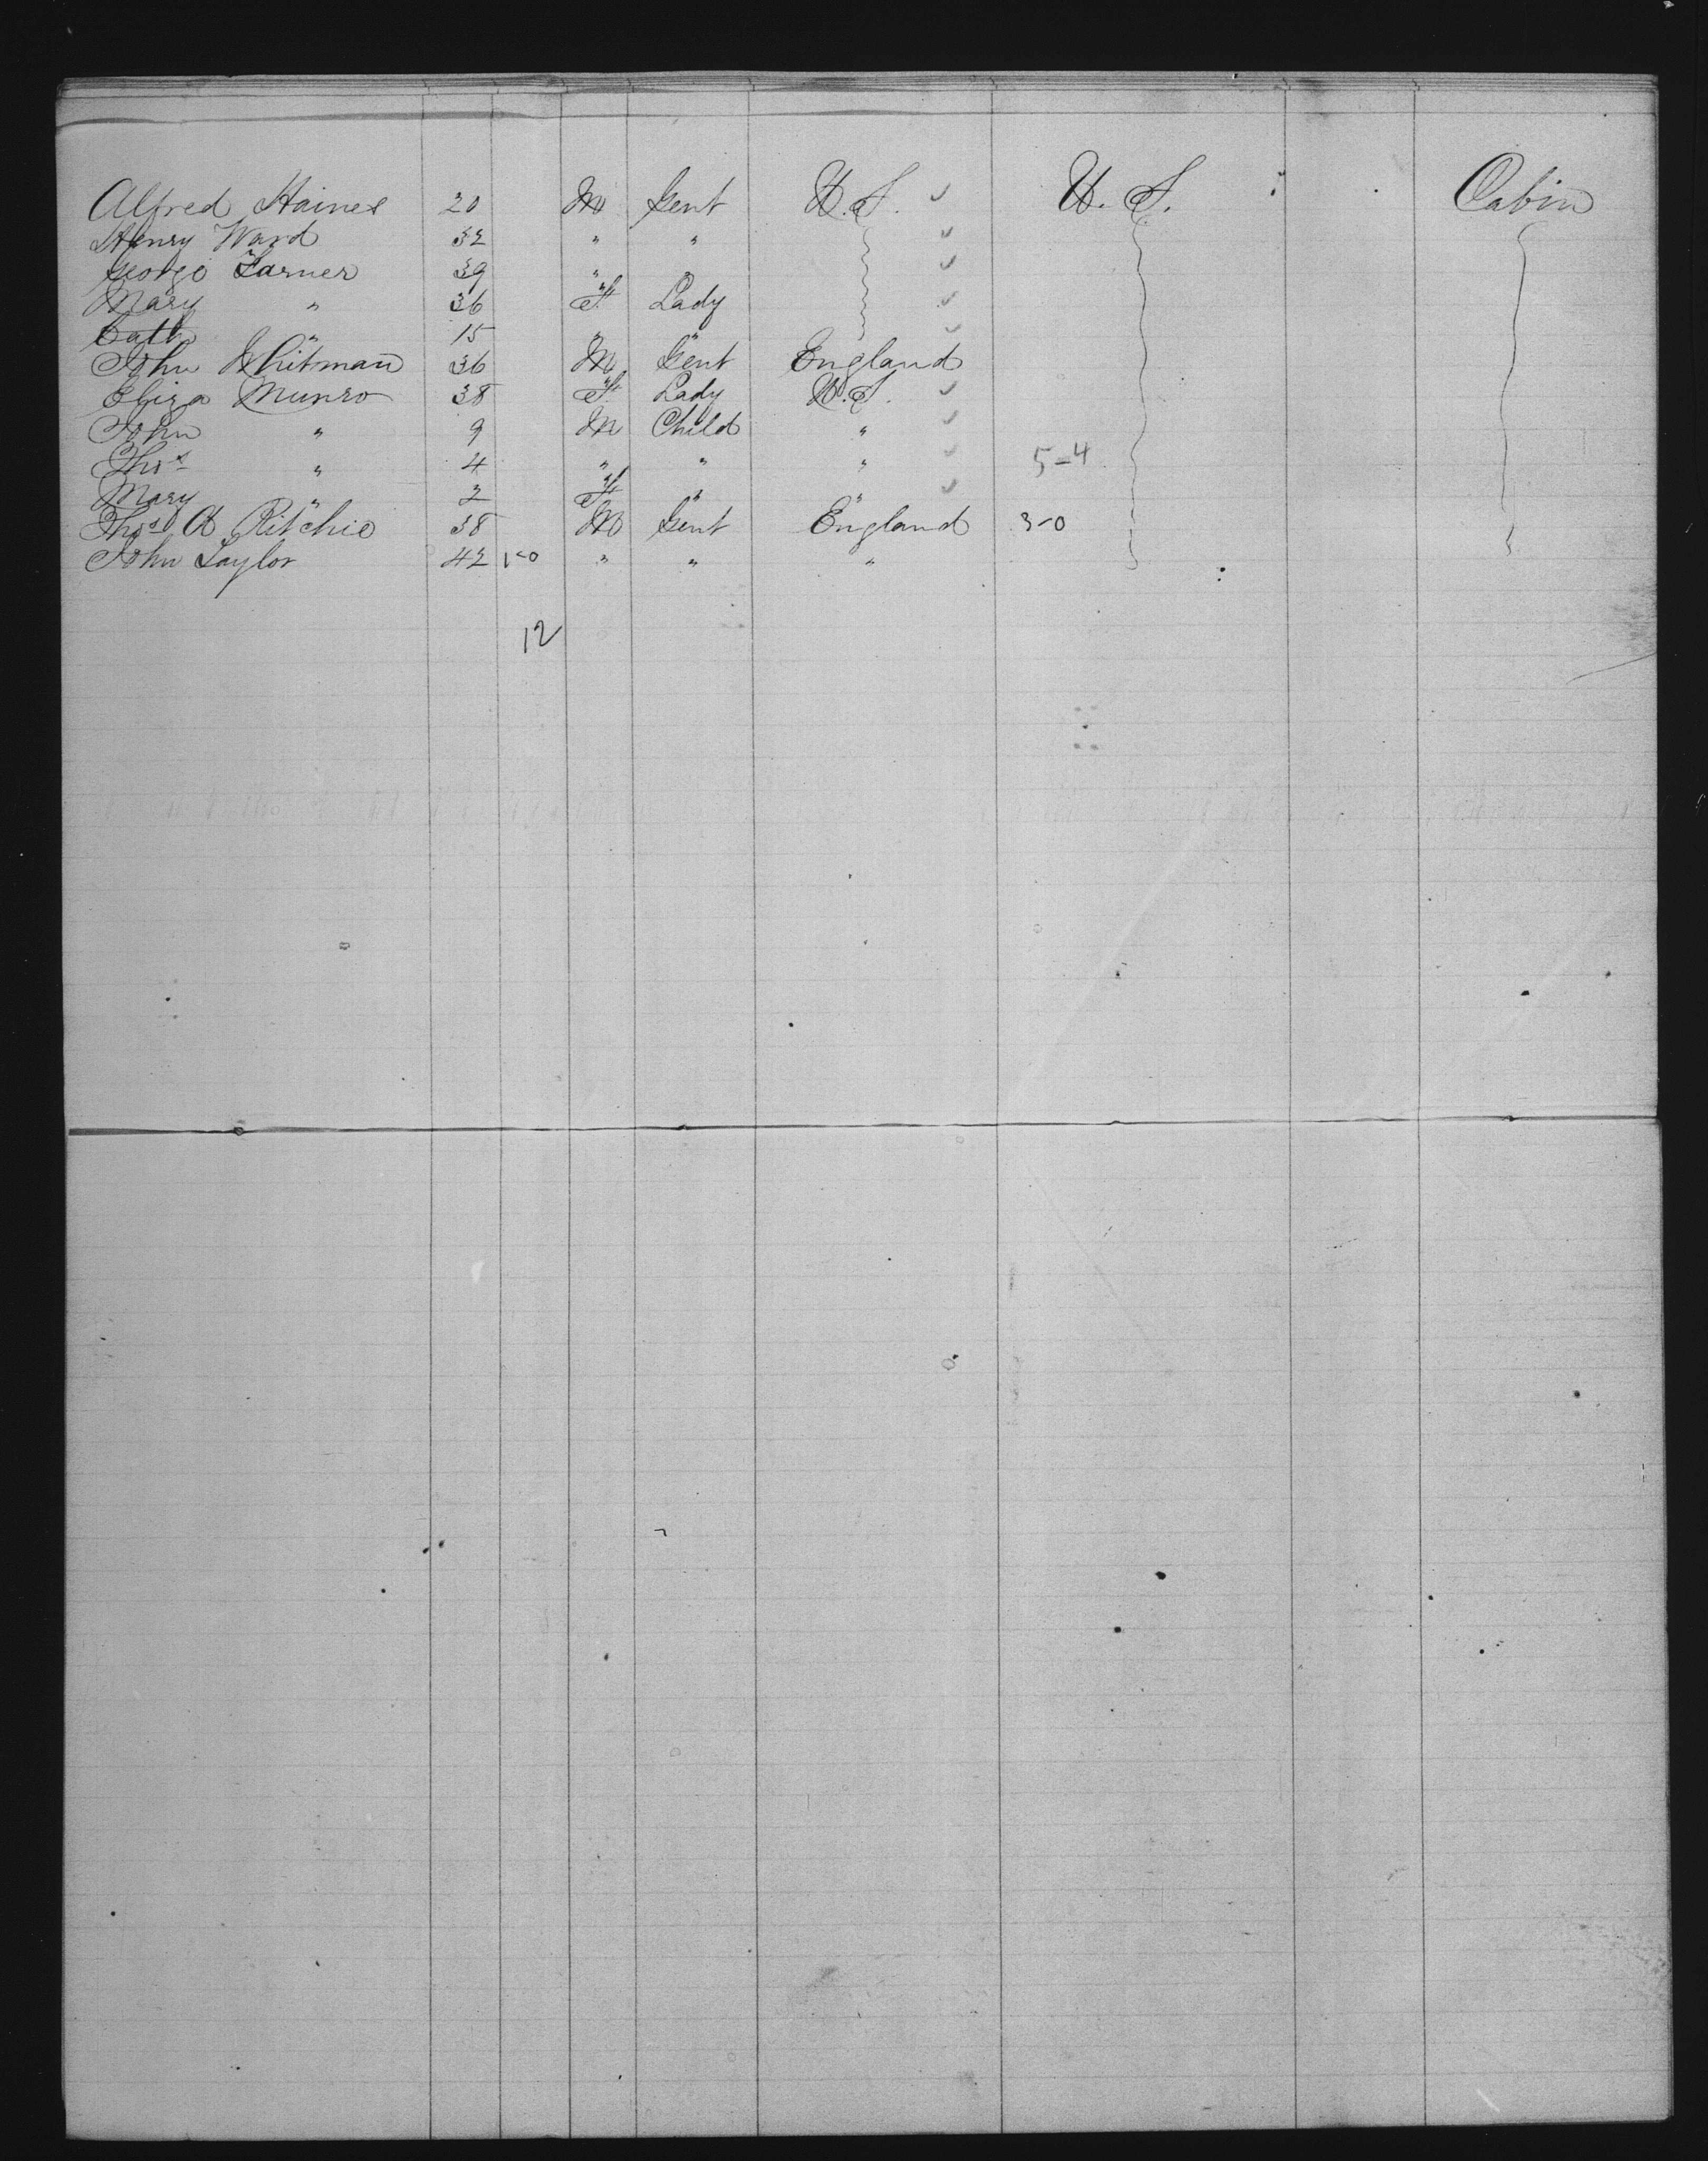 Alfred Haines 20 M Gent U.S. ✓ U.S. Cabin
Henry Ward 32 " " ✓
George Larner 39 " " ✓
Mary " 36 F. Lady ✓
Cath " 15 " " ✓
John Whitman 36 M Gent England
Eliza Munro 38 F. Lady U.S. ✓
John " 9 M Child " ✓
Thos " 4 " " " ✓ 5-4
Mary " 2 F " " ✓
Thos A Ritchie 38 M Gent England 3-0
John Taylor 42 1-0 " " "
12